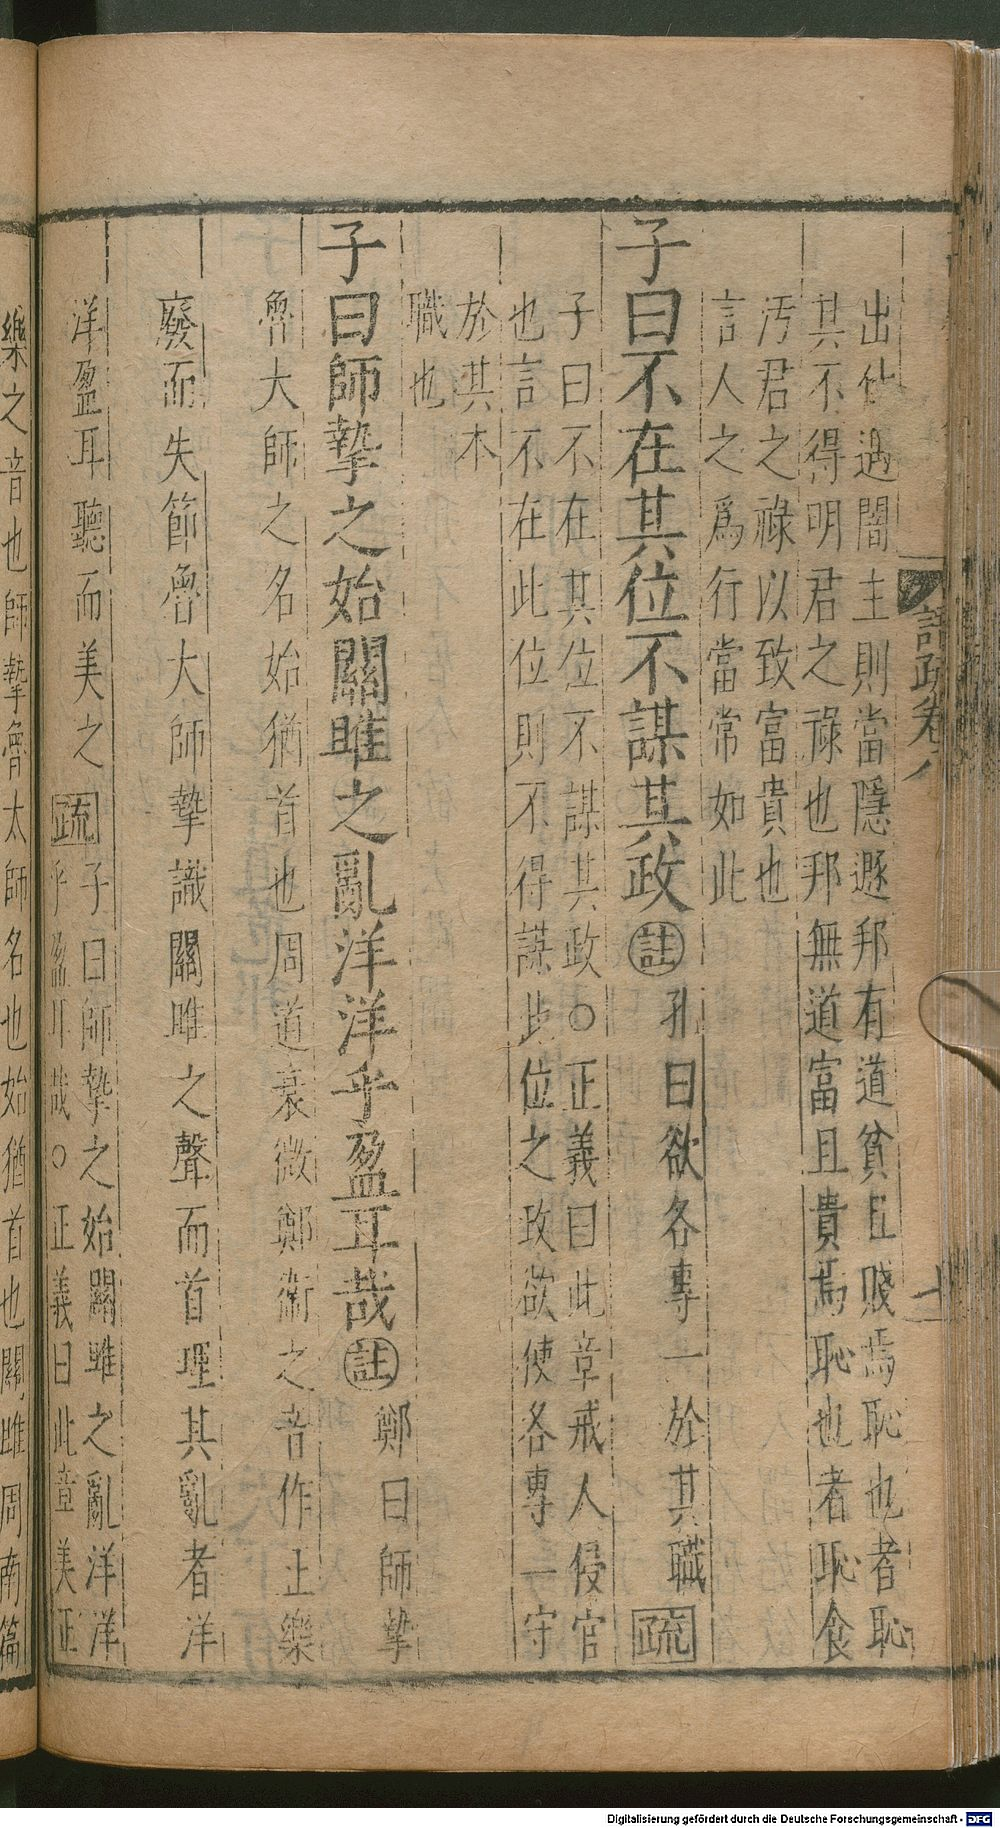 語疏卷八
出仕遇闇主則當隱遯邦有道貧且賤焉恥也者恥
其不得明君之祿也邦無道富且貴焉恥也者恥食
汚君之祿以致富貴也
言人之爲行當常如此
子曰不在其位不謀其政註孔曰欲各專一於其職疏
子曰不在其位不謀其政○正義曰此章戒人侵官
也言不在此位則不得謀此位之政欲使各專一守
於其本
職也
子曰師摯之始關雎之亂洋洋乎盈耳哉註鄭曰師摯
魯大師之名始猶首也周道衰微鄭衛之音作正樂
廢而失節魯大師摯識關雎之聲而首理其亂者洋
洋盈耳聽而美之疏子曰師摯之始關雎之亂洋洋
乎盈耳哉○正義曰此章美正
樂之音也師摯魯太師名也始猶首也關雎周南篇
Digitalisierung gefördert durch die Deutsche Forschungsgemeinschaft - DFG